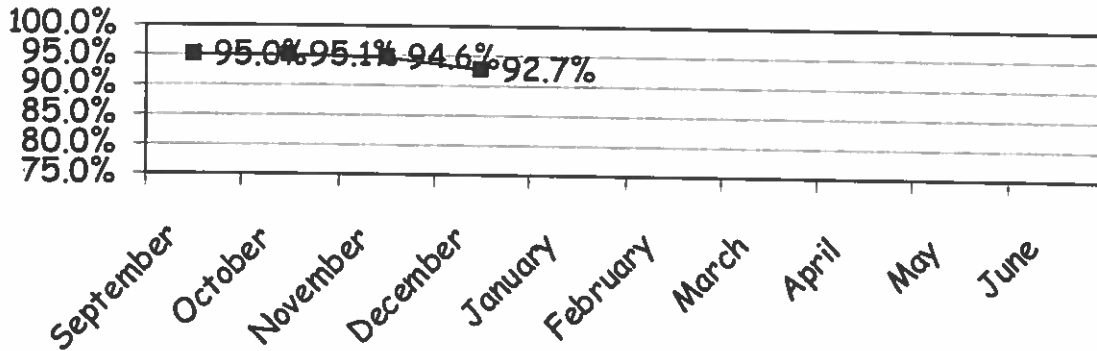 100.0%
95.0%
90.0%
85.0%
80.0%
75.0%
95.0% 95.1% 94.6% 92.7%
September October November December January February March April May June